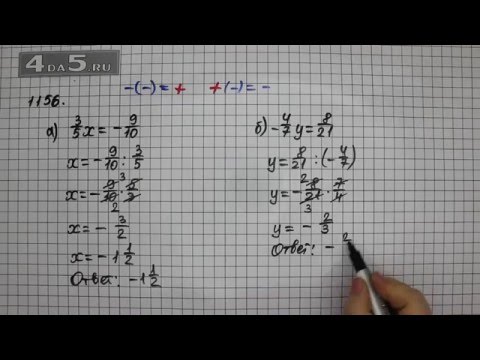 4DA5.RU
-(-)=+ +(-)=-
1156.
а) 3/5 x = - 9/10
x = - 9/10 : 3/5
x = - 9/10 · 5/3 3 2
x = - 3/2
x = -1 1/2
Ответ: -1 1/2
б) - 4/7 y = 8/21
y = 8/21 : (- 4/7)
y = - 8/21 · 7/4 2 3
y = - 2/3
Ответ: - 2